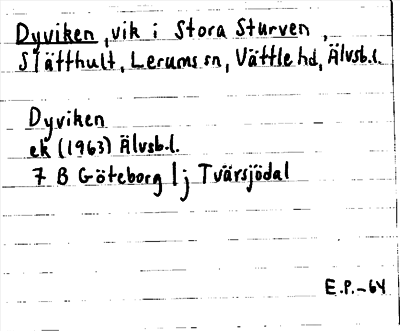 Dyviken, vik i Stora Sturven,
Slätthult, Lerums sn, Vättle hd, Älvsb.l.
Dyviken
ek (1963) Älvsb.l.
7 B Göteborg 1 j Tvärsjödal
E.P.-64